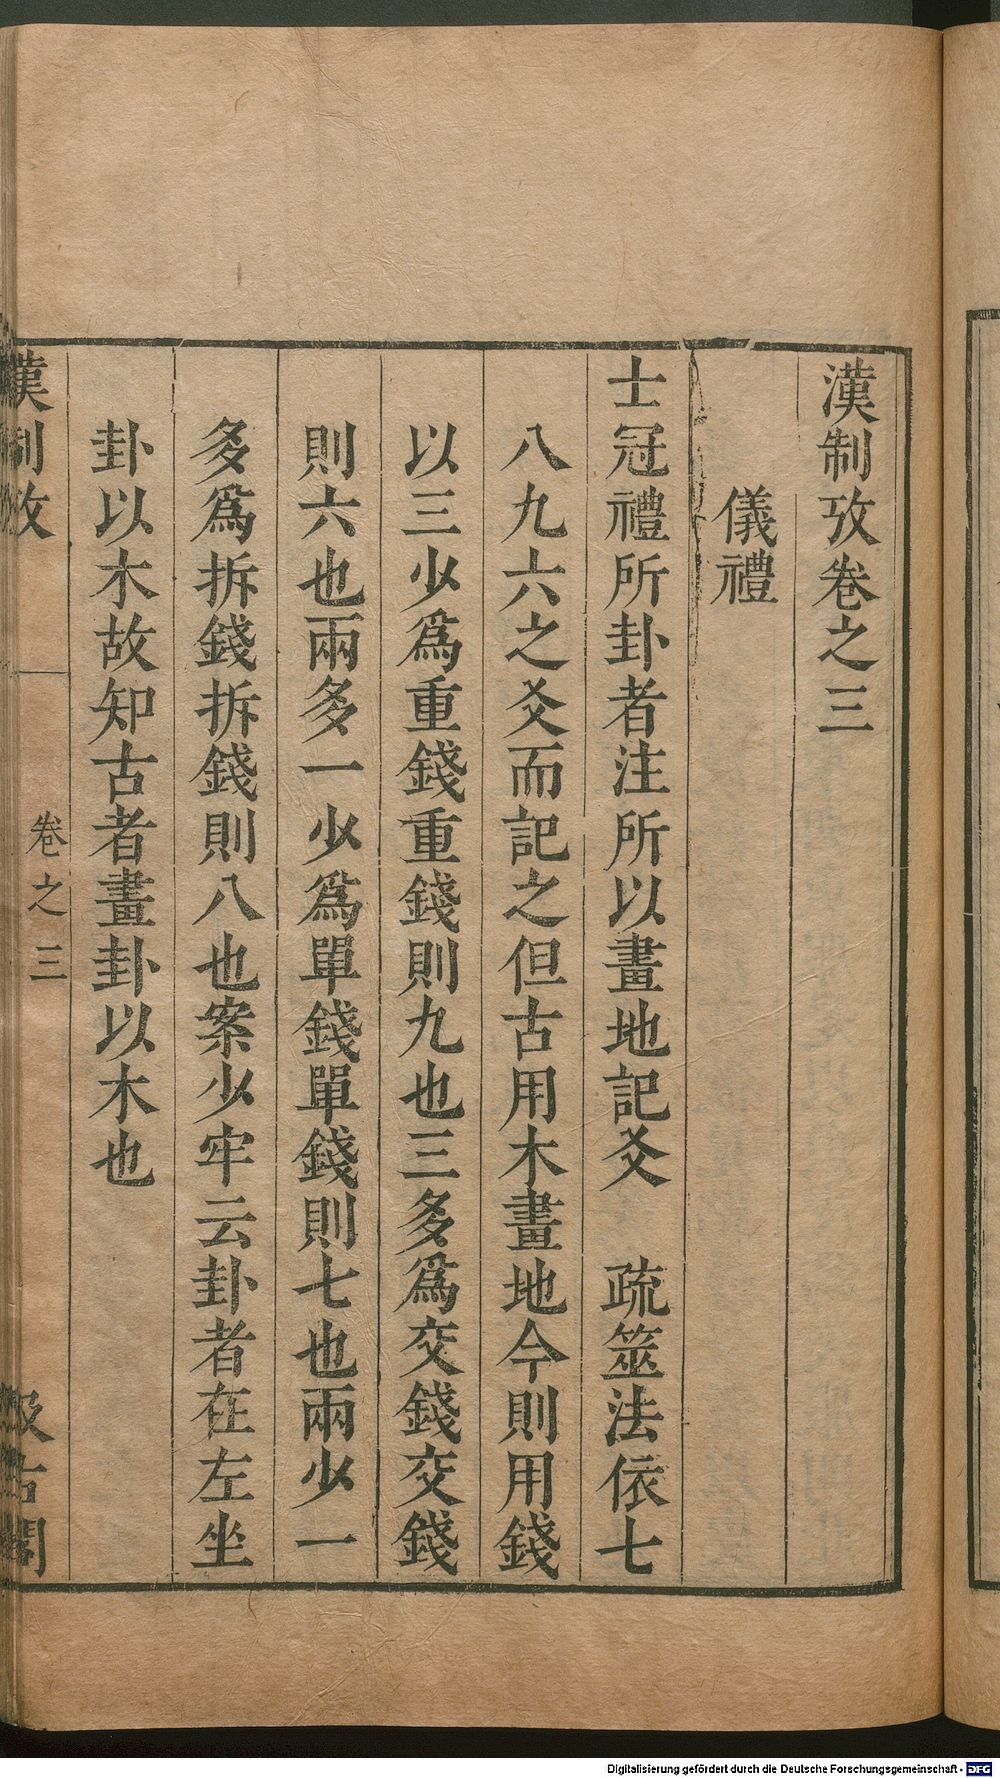 漢制攷卷之三
儀禮
士冠禮所卦者注所以畫地記爻　疏筮法依七
八九六之爻而記之但古用木畫地今則用錢
以三少爲重錢重錢則九也三多爲交錢交錢
則六也兩多一少爲單錢單錢則七也兩少一
多爲拆錢拆錢則八也案少牢云卦者在左坐
卦以木故知古者畫卦以木也
漢制攷
卷之三
汲古閣
Digitalisierung gefördert durch die Deutsche Forschungsgemeinschaft - DFG